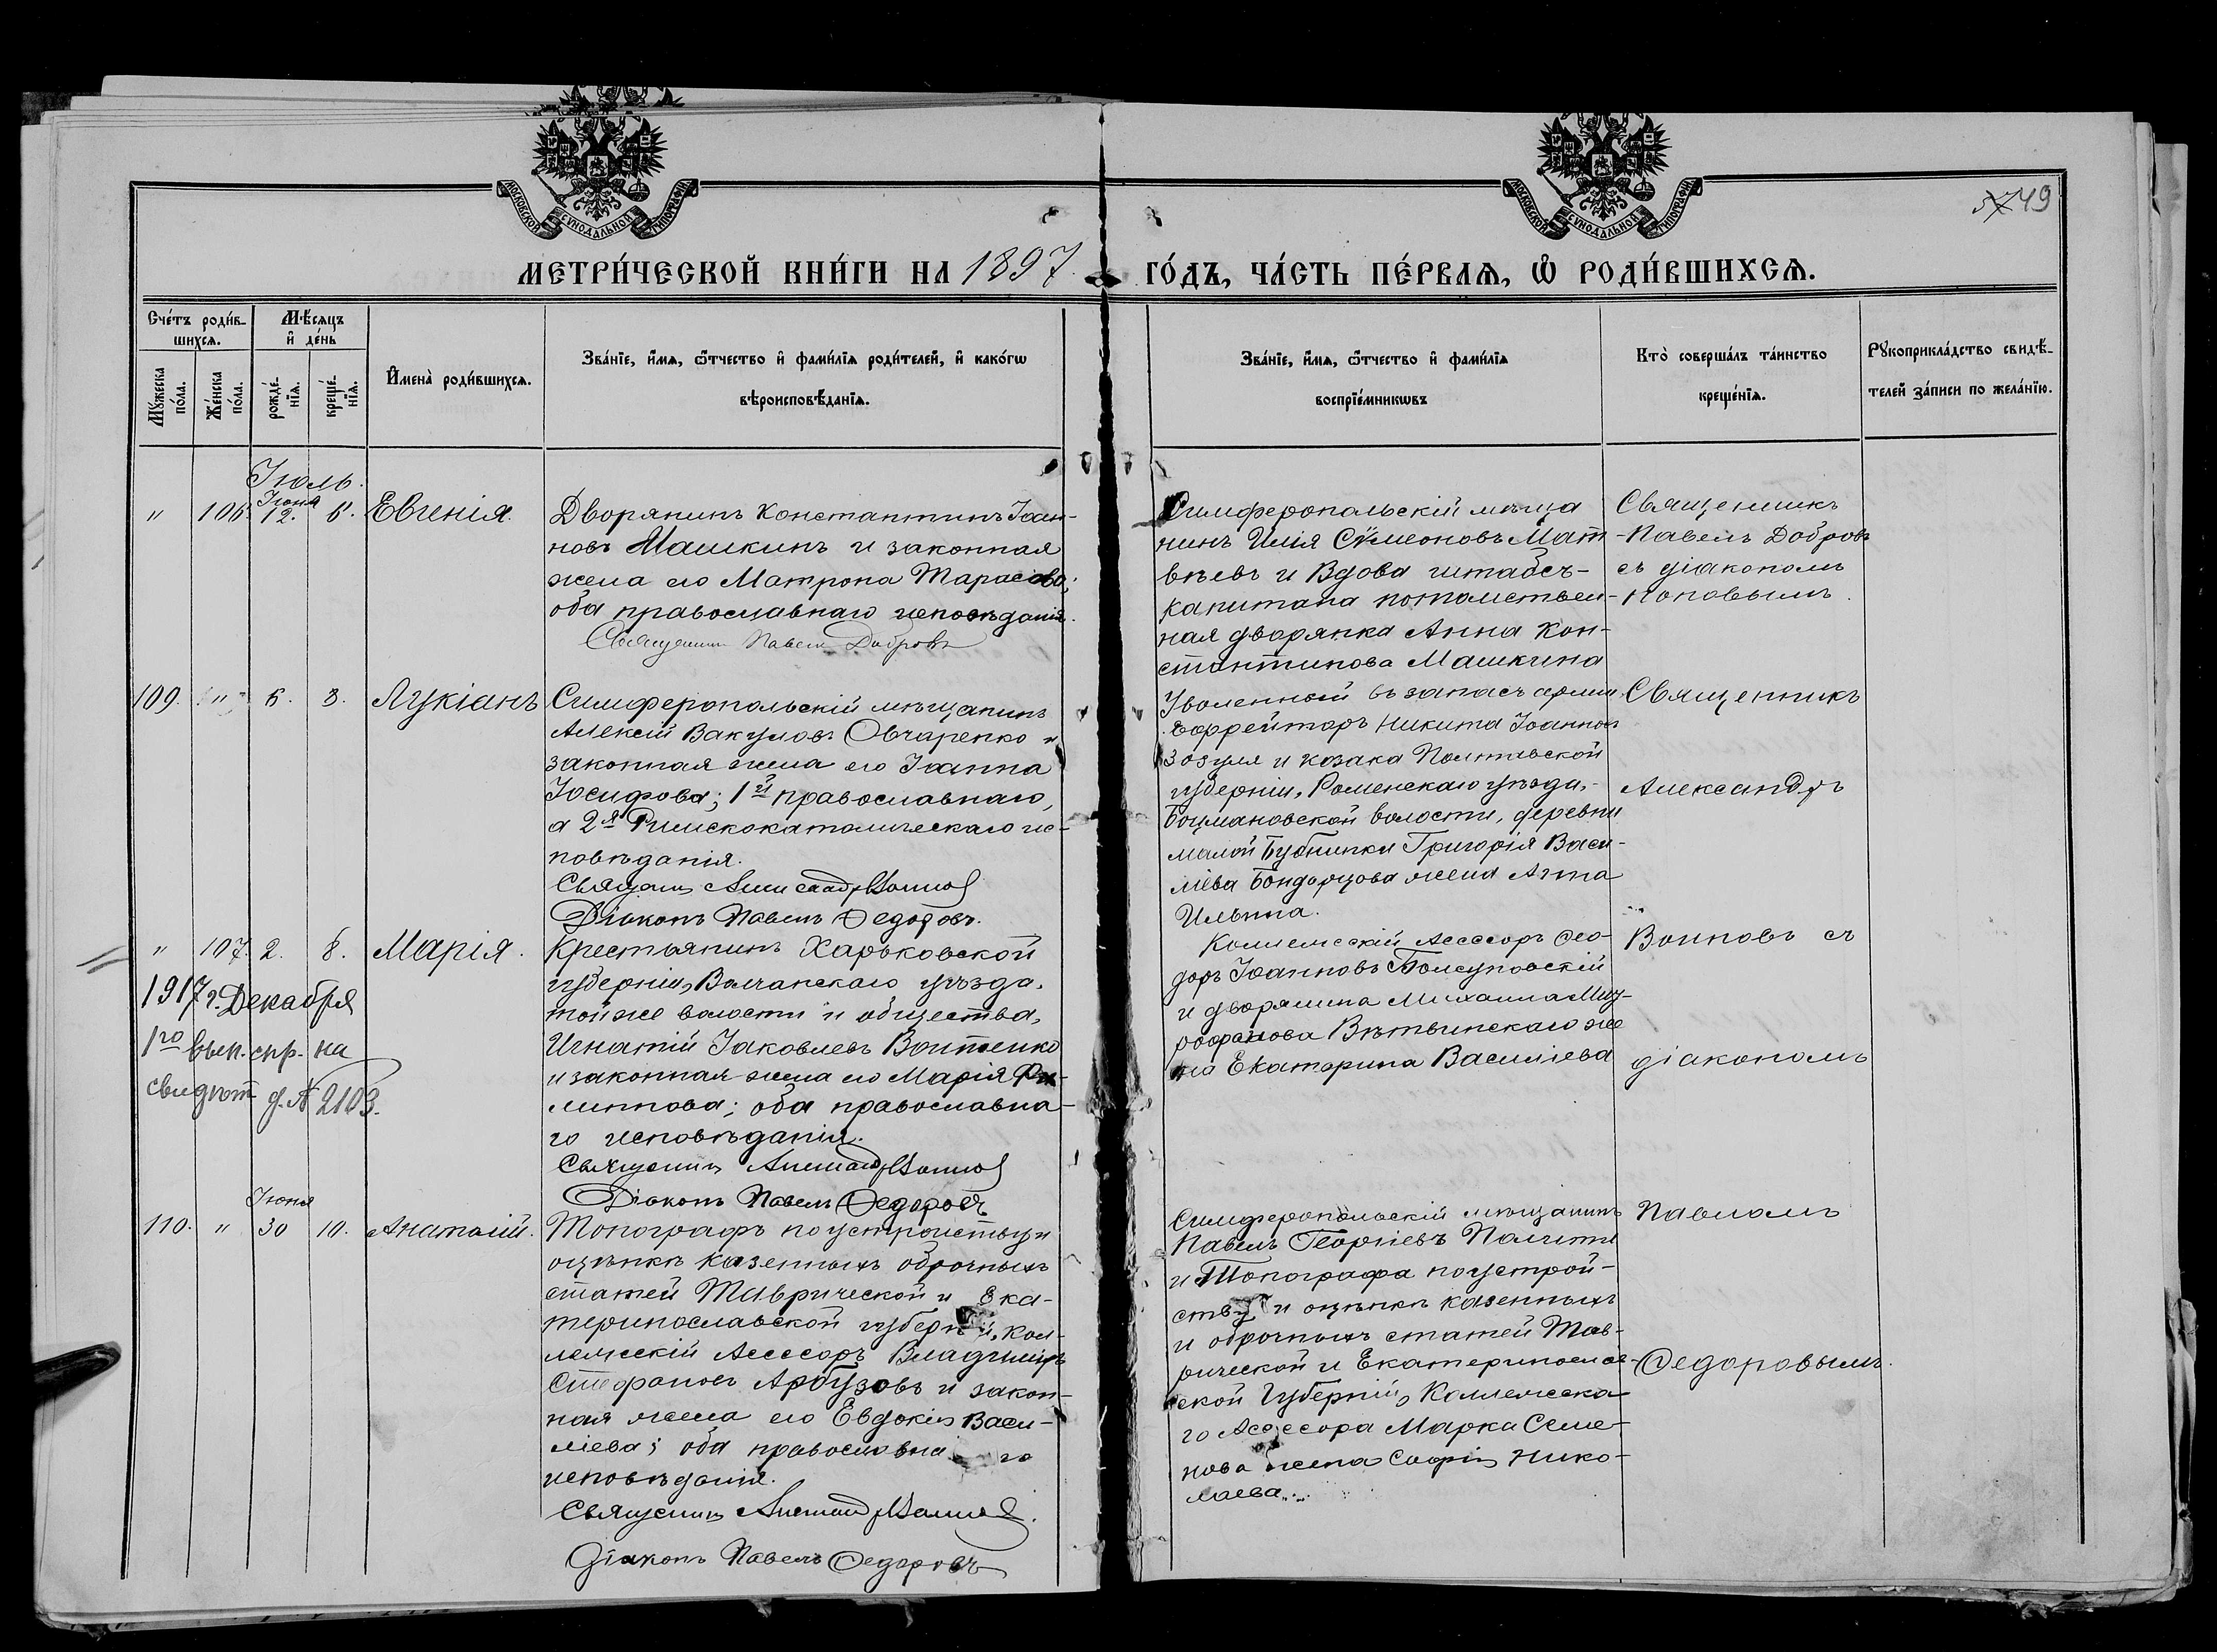 МОСКОВСКОЙ СѴНОДАЛЬНОЙ ТИПОГРАФІИ
МОСКОВСКОЙ СѴНОДАЛЬНОЙ ТИПОГРАФІИ
49
МЕТРИ́ЧЕСКОЙ КНИ́ГИ НА 1897 ГО́ДЪ, ЧА́СТЬ ПЕ́РВАѦ, Ѡ҆ РОДИ́ВШИХСѦ.
Сче́тъ роди́в-
шихсѧ.
Мѣ́сѧцъ
и҆ де́нь
Мꙋ́жеска
по́ла.
Же́нска
по́ла.
рожде́-
нїѧ.
креще́-
нїѧ.
И҆мена̀ роди́вшихсѧ.
Зва́нїе, и҆́мѧ, ѻ҆́тчество и҆ фами́лїѧ роди́телей, и҆ како́гѡ
вѣроисповѣ́данїѧ.
Зва́нїе, и҆́мѧ, ѻ҆́тчество и҆ фами́лїѧ
воспрїе́мникѡвъ
Кто̀ соверша́лъ та́инство
креще́нїѧ.
Рꙋкоприкла́дство свидѣ́-
телей за́писи по жела́нїю.
Іюль.
Іюня
" 106. 12. 6. Евгенія.
Дворянинъ Константинъ Іоан-
новъ Машкинъ и законная
жена его Матрона Тарасова;
оба православнаго исповѣданія.
Священникъ Павелъ Добровъ
Симферопольскій мѣща
нинъ Илія Сѵмеоновъ Мат-
вѣевъ и Вдова штабсъ-
капитана потомствен-
ная дворянка Анна Кон-
стантинова Машкина
Священникъ
Павелъ Добровъ
съ діакономъ
Поповымъ.
109. " 6. 8. Лукіанъ
Симферопольскій мѣщанинъ
Алексій Вакуловъ Овчаренко и
законная жена его Іоанна
Іосифова; 1й православнаго,
а 2я Римскокатолическаго ис-
повѣданія.
Священникъ Александръ Воиновъ
Діаконъ Павелъ Ѳедоровъ.
Уволенный въ запасъ арміи
Ефрейторъ Никита Іоанновъ
Зозуля и козака Полтавской
губерніи, Роменскаго уѣзда,
волости, деревни
малой Бубнинки Григорія Васи-
ліева жена Анна
Ильина.
Священникъ
Александръ
" 107. 2. 8. Марія.
1917 г. Декабря
1го вып. спр. на
свидѣт д. № 2103.
Крестьянинъ Харьковской
губерніи, Волчанскаго уѣзда,
той же волости и общества,
Игнатій Іаковлевъ Войтенко
и законная жена его Марія Фи-
липпова; оба православна-
го исповѣданія.
Священникъ Александръ Воиновъ
Діаконъ Павелъ Ѳедоровъ
Коллежскій Асессоръ Ѳео-
доръ Іоанновъ
и дворянина Михаила Мит-
рофанова Вѣтвинскаго же
на Екатерина Василіева
Воиновъ съ
діакономъ
Іюня
110. " 30 10. Анатолій.
Топографъ по устройству и
оцѣнкѣ казенныхъ оброчныхъ
статей Таврической и Ека-
теринославской губерній, Кол-
лежскій Асессоръ Владиміръ
Стефановъ Арбузовъ и закон-
ная жена его Евдокія Васи-
ліева; оба православна го
исповѣданія.
Священникъ Александръ Воиновъ.
Діаконъ Павелъ Ѳедоровъ
Симферопольскій мѣщанинъ
Павелъ Георгіевъ
и Топографа по устрой-
ству и оцѣнкѣ казенныхъ
и оброчныхъ статей Тав-
рической и Екатеринослав-
ской Губерній, Коллежска-
го Асессора Марка Семе-
нова жена Софія Нико-
лаева.
Павломъ
Ѳедоровымъ.